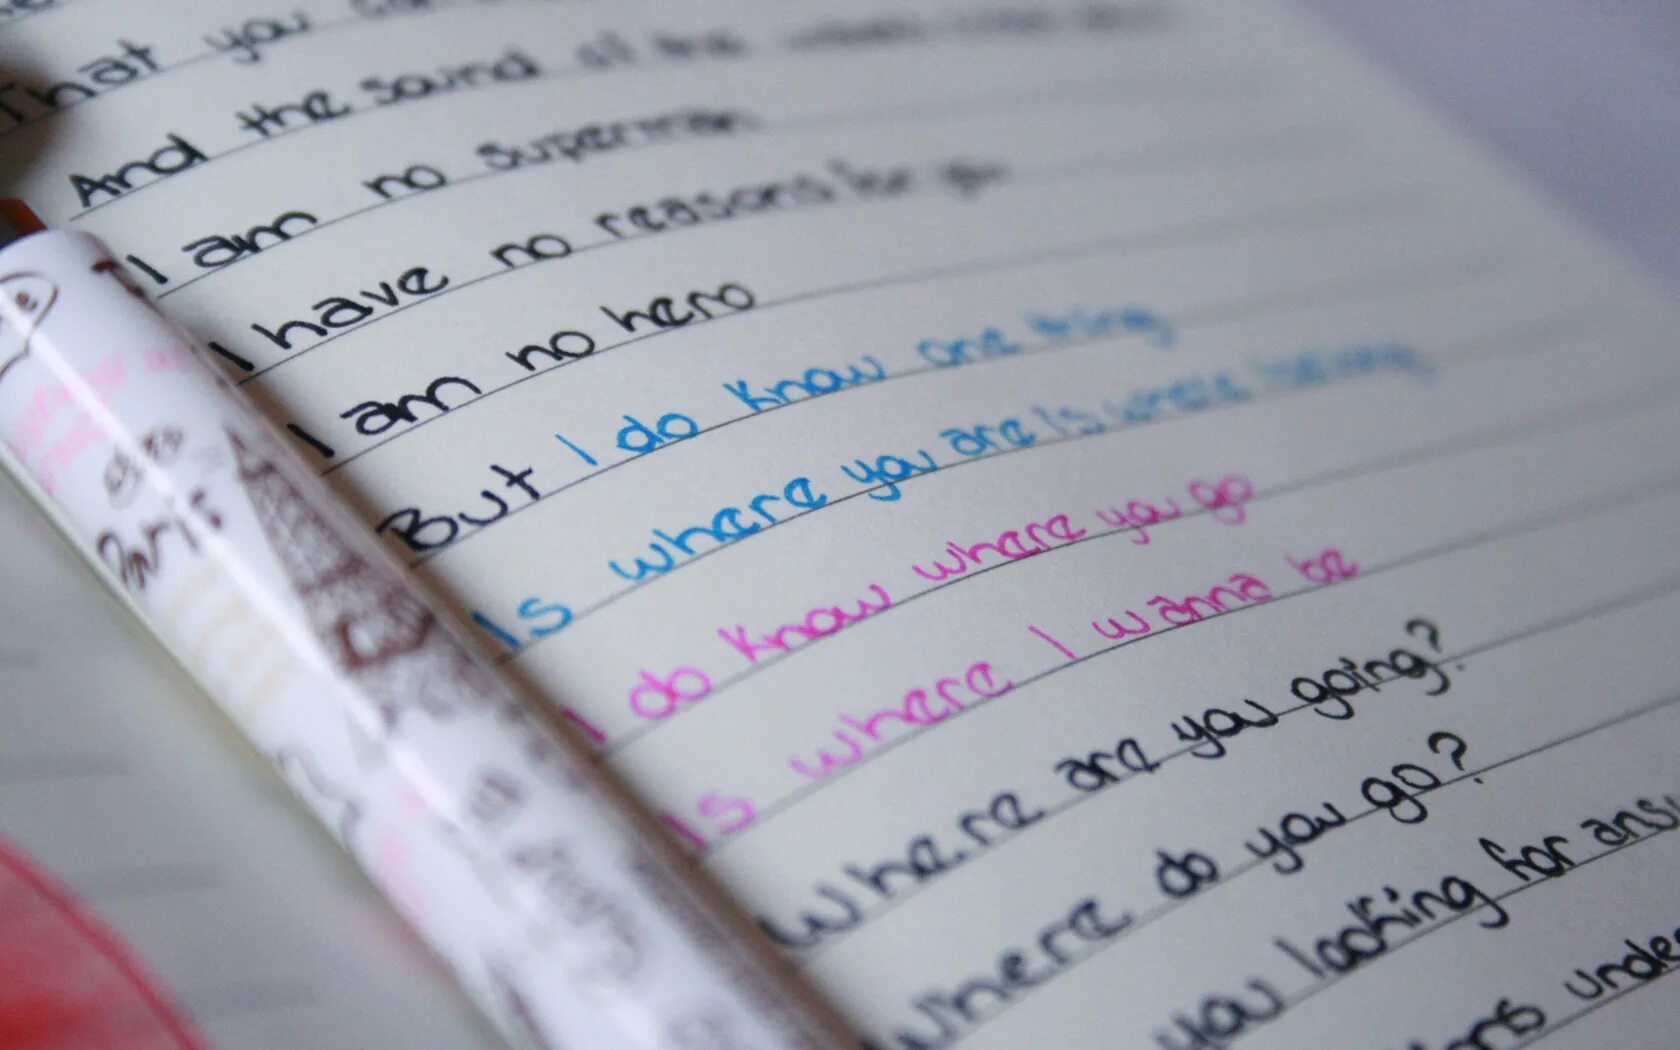 That you
And the sound of the
I am no superman
I have no reasons for you
I am no hero
But I do know one thing
Is where you are is where
I do know where you go
Is where I wanna be
Where are you going?
Where do you go?
you looking for ans
unde
Paris